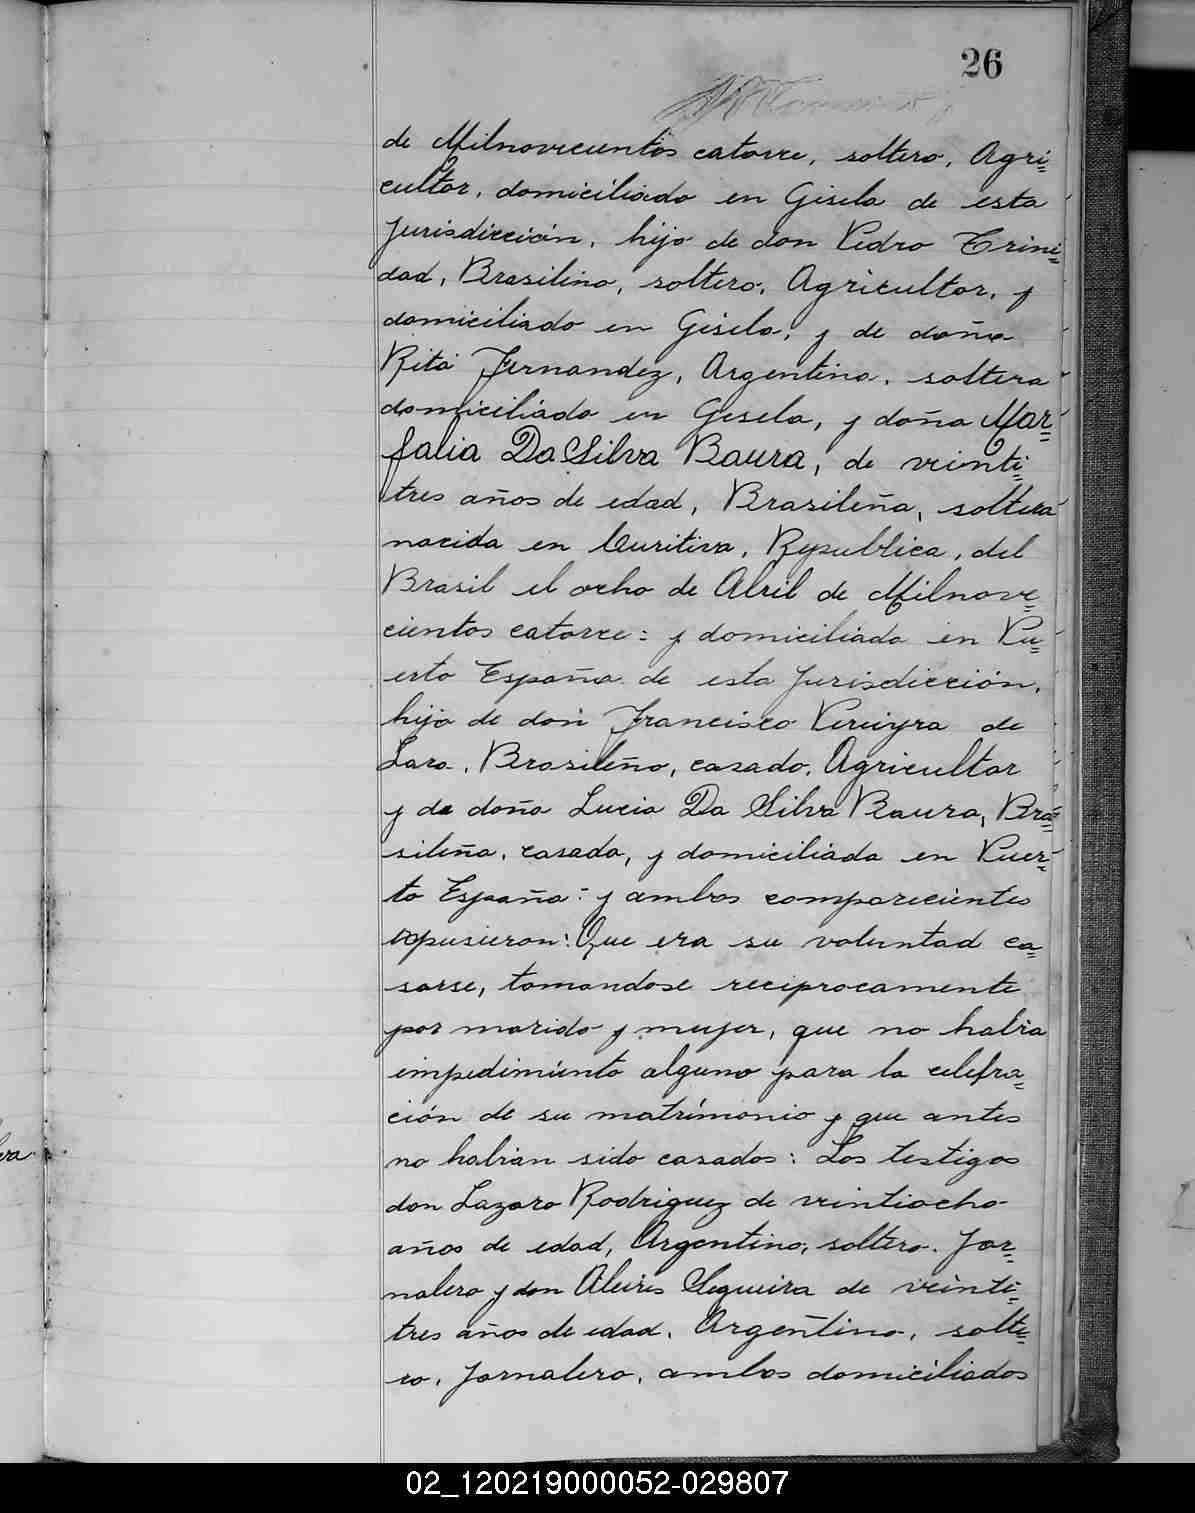 26
de Milnovecientos catorce, soltero, Agri=
cultor, domiciliado en Gisela de esta
Jurisdicción, hijo de don Pedro Trini=
dad, Brasilino, soltero, Agricultor, y
domiciliado en Gisela, y de doña
Rita Fernandez, Argentina, soltera
domiciliada en Gesela, y doña Mar=
falia Da Silva Baura, de veinti=
tres años de edad, Brasileña, soltera
nacida en Curitiva, Republica, del
Brasil el ocho de Abril de Milnove=
cientos catorce: y domiciliada en Pu=
erto España de esta Jurisdicción,
hija de don Francisco Pereiyra de
Lara, Brasileño, casado, Agricultor
y de doña Lucia Da Silva Baura, Bra=
sileña, casada, y domiciliada en Puer=
to España: y ambos comparecientes
expusieron: Que era su voluntad ca=
sarse, tomandose reciprocamente
por marido y mujer, que no habia
impedimiento alguno para la celebra=
ción de su matrimonio y que antes
no habian sido casados: Los testigos
don Lazaro Rodriguez de veintiocho
años de edad, Argentino, soltero, Jor=
nalero y don Alcires Segueira de veinti=
tres años de edad, Argentino, solte=
ro, Jornalero, ambos domiciliados
02_120219000052-029807